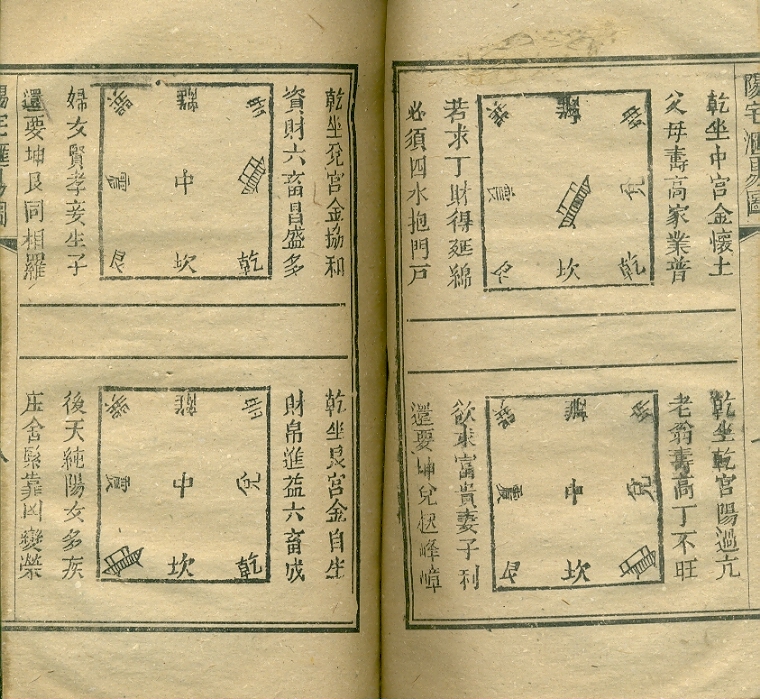 陽宅滙易圖
乾坐中宮金懷土
父母壽高家業普
巽 離 坤
震 兌
艮 坎 乾
若求丁財得延綿
必須四水抱門戶
乾坐乾宮陽過亢
老翁壽高丁不旺
巽 離 坤
震 中 兌
艮 坎
欲求富貴妻子利
還要坤兌起峰嶂
乾坐兌宮金協和
資財六畜昌盛多
巽 離 坤
震 中
艮 坎 乾
婦女賢孝妾生子
還要坤艮同相羅
乾坐艮宮金自生
財帛進益六畜成
巽 離 坤
震 中 兌
坎 乾
後天純陽女多疾
庄舍緊靠凶變榮